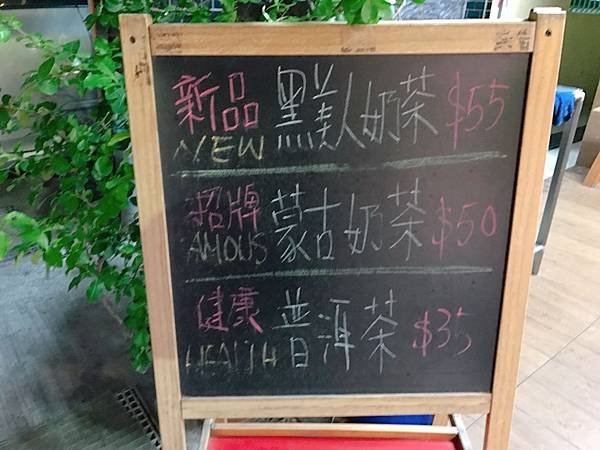 新品 黑美人奶茶 $55
NEW
招牌 蒙古奶茶 $50
AMOUS
健康 普洱茶 $35
HEALTH